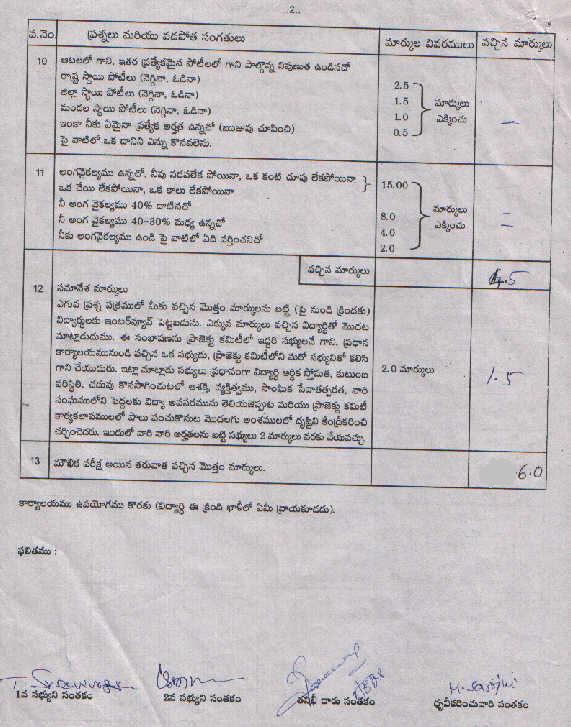 2..
వ.నెం. ప్రశ్నలు మరియు వడపోత సంగతులు మార్కుల వివరములు వచ్చిన మార్కులు
10 ఆటలలో గాని, ఇతర ప్రత్యేకమైన పోటీలలో గాని పాల్గొన్న నిపుణత ఉండినదో
రాష్ట్ర స్థాయి పోటీలు (నెగ్గినా, ఓడినా) 2.5
జిల్లా స్థాయి పోటీలు (నెగ్గినా, ఓడినా) 1.5 మార్కులు
మండల స్థాయి పోటీలు (నెగ్గినా, ఓడినా) 1.0 ఎక్కించు —
ఇంకా నీకు ఏమైనా ప్రత్యేక అర్హత ఉన్నదో (ఋజువు చూపించి) 0.5
పై వాటిలో ఒక దానిని ఎన్ను కొనవలెను.
11 అంగవైకల్యము ఉన్నదో, నీవు నడవలేక పోయినా, ఒక కంటి చూపు లేకపోయినా
ఒక చేయి లేకపోయినా, ఒక కాలు లేకపోయినా 15.00
నీ అంగ వైకల్యము 40% దాటినదో మార్కులు
నీ అంగ వైకల్యము 40-30% మధ్య ఉన్నదో 8.0 ఎక్కించు —
నీకు అంగవైకల్యము ఉండి పై వాటిలో ఏది వర్తించనిదో 4.0 —
2.0
వచ్చిన మార్కులు 4.5
12 సమావేశ మార్కులు
ఎగువ ప్రశ్న పత్రములో మీకు వచ్చిన మొత్తం మార్కులను బట్టి (పై నుండి క్రిందకు)
విద్యార్థులకు ఇంటర్వ్యూవ్ పెట్టబడును. ఎక్కువ మార్కులు వచ్చిన విద్యార్థితో మొదట
మాట్లాడుదుము. ఈ సంభాషణను ప్రాజెక్టు కమిటీలో ఇద్దరి సభ్యులచే గాని, ప్రధాన
కార్యాలయమునుండి వచ్చిన ఒక సభ్యుడు, ప్రాజెక్టు కమిటీలోని మరో సభ్యునితో కలిసి
గాని చేయుదురు. ఇట్లా మాట్లాడు సభ్యులు ప్రధానంగా విద్యార్థి ఆర్థిక స్తోమత, కుటుంబ 2.0 మార్కులు 1.5
పరిస్థితి, చదువు కొనసాగించుటలో ఆసక్తి, వ్యక్తిత్వము, సాంఘిక సేవాతత్పరత, వారి
సంఘములోని పెద్దలకు విద్యా అవసరమును తెలియజెప్పుట మరియు ప్రాజెక్టు కమిటీ
కార్యకలాపములలో పాలు పంచుకొనుట మొదలగు అంశములలో దృష్టిని కేంద్రీకరించి
చర్చించెదరు. ఇందులో వారి వారి అర్హతలను బట్టి సభ్యులు 2 మార్కులు వరకు వేయవచ్చు
13 మౌఖిక పరీక్ష అయిన తరువాత వచ్చిన మొత్తం మార్కులు. 6.0
కార్యాలయము ఉపయోగము కొరకు (విద్యార్థి ఈ క్రింది ఖాళీలో ఏమీ వ్రాయకూడదు).
ఫలితము :
1వ సభ్యుని సంతకం 2వ సభ్యుని సంతకం తనిఖీ దారు సంతకం ధృవీకరించువారి సంతకం